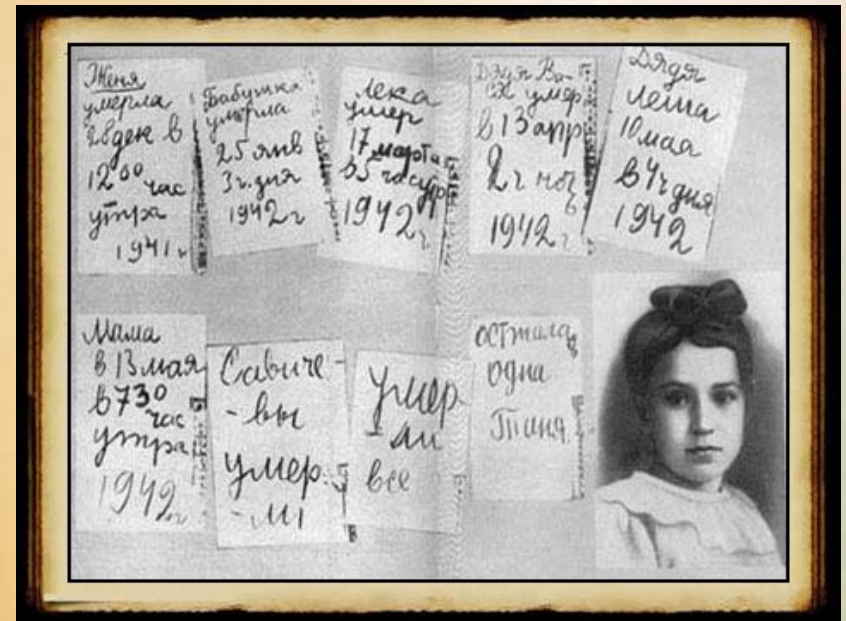 Женя
умерла
28 дек в
12 00 час
утра
1941 г
Бабушка
умерла
25 янв
3 ч. дня
1942 г
Лека
умер
17 марта
в 5 час утр
1942 г
Дядя Ва-
ся умер
в 13 апр
2 ч ночь
1942 г
Дядя
Леша
10 мая
в 4 ч дня
1942
Мама
в 13 мая
в 7 30
час
утра
1942 г
Савиче-
-вы
умер-
-ли
умер
-ли
все
осталась
одна
Таня